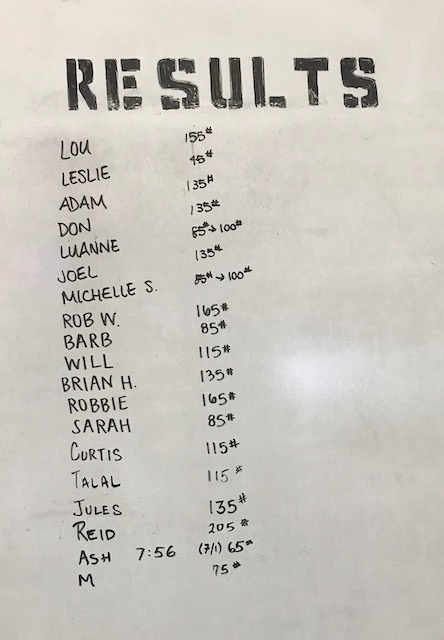 RESULTS
LOU 155#
LESLIE 45#
ADAM 135#
DON 135#
LUANNE 85# → 100#
JOEL 135#
MICHELLE S. 85# → 100#
ROB W. 165#
BARB 85#
WILL 115#
BRIAN H. 135#
ROBBIE 165#
SARAH 85#
CURTIS 115#
TALAL 115#
JULES 135#
REID 205#
ASH 7:56 (7/1) 65#
M 75#